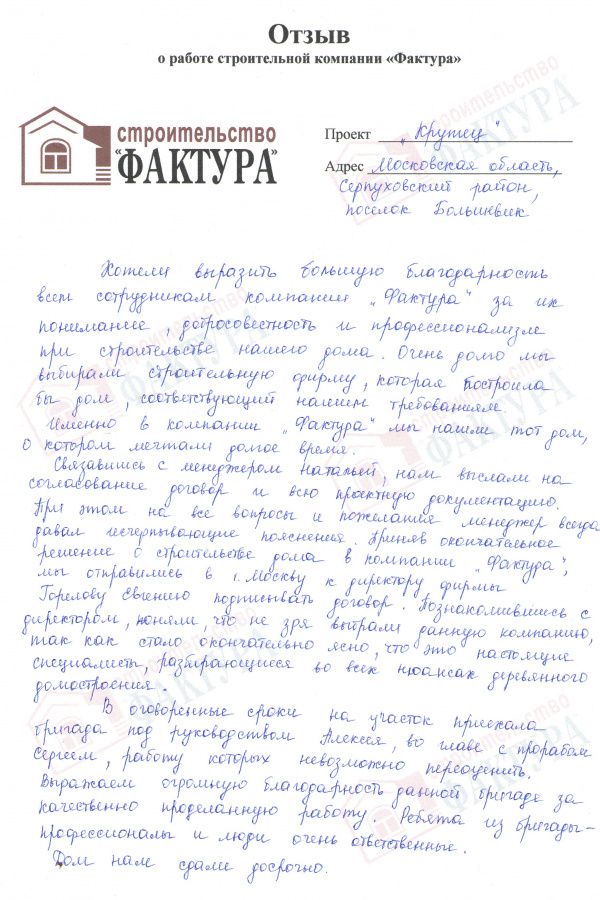 Отзыв
о работе строительной компании «Фактура»
строительство
"ФАКТУРА"
Проект „Крутец“
Адрес Московская область,
Серпуховский район,
поселок Большевик
Хотели выразить большую благодарность
всем сотрудникам компании „Фактура“ за их
понимание, добросовестность и профессионализм
при строительстве нашего дома. Очень долго мы
выбирали строительную фирму, которая построила
бы дом, соответствующий нашим требованиям.
Именно в компании „Фактура“ мы нашли тот дом,
о котором мечтали долгое время.
Связавшись с менеджером Натальей, нам выслали на
согласование договор и всю проектную документацию.
При этом на все вопросы и пожелания менеджер всегда
давал исчерпывающие пояснения. Приняв окончательное
решение о строительстве дома в компании „Фактура“,
мы отправились в г. Москву к директору фирмы
Горелову Евгению подписывать договор. Познакомившись с
директором, поняли, что не зря выбрали данную компанию,
так как стало окончательно ясно, что это настоящие
специалисты, разбирающиеся во всех нюансах деревянного
домостроения.
В оговоренные сроки на участок приехала
бригада под руководством Алексея, во главе с прорабом
Сергеем, работу которых невозможно переоценить.
Выражаем огромную благодарность данной бригаде за
качественно проделанную работу. Ребята из бригады-
профессионалы и люди очень ответственные.
Дом нам сдали досрочно.